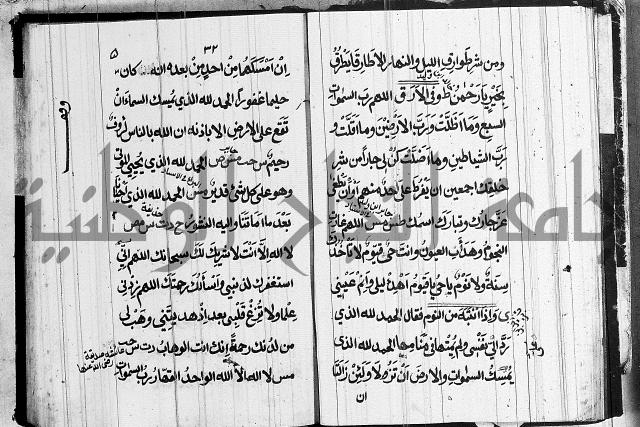 ومن شر طوارق الليل والنهار الا طارقا يطرق
بخير يا رحمن طو في الارق اللهم رب السموات
السبع وما اظلت ورب الارضين وما اقلت و
رب الشياطين وما اضلت كن لي جارا من شر
خلقك اجمعين ان يفرط على احد منهم او ان يطغى
عز جارك وتبارك اسمك طس مص اللهم غارت
النجوم وهدأت العيون وانت حي قيوم لا تأخذك
سنة ولا نوم يا حي يا قيوم اهدئ ليلي وانم عيني
ى واذا انتبه من النوم فقال الحمد لله الذي
رد الي نفسي ولم يمتها في منامها الحمد لله الذي
يمسك السموات والارض ان تزولا ولئن زالتا
ان
٣٢
٥
ان امسكهما من احد من بعده انه كان
حليما غفورا الحمد لله الذي يمسك السماء ان
تقع على الارض الا باذنه ان الله بالناس لرؤف
رحيم س حب مس ص الحمد لله الذي يحيي الموتى
وهو على كل شئ قدير مس الحمد لله الذي احيانا
بعد ما اماتنا واليه النشور خ د ت س مص
لا اله الا انت لا شريك لك سبحانك اللهم اني
استغفرك لذنبي واسألك رحمتك اللهم زدني
علما ولا تزغ قلبي بعد اذ هديتني وهب لي
من لدنك رحمة انك انت الوهاب د ت س حب
عائشه صديقة
رضى الله عنها
مس لا اله الا الله الواحد القهار رب السموات
جامعة النجاح الوطنية